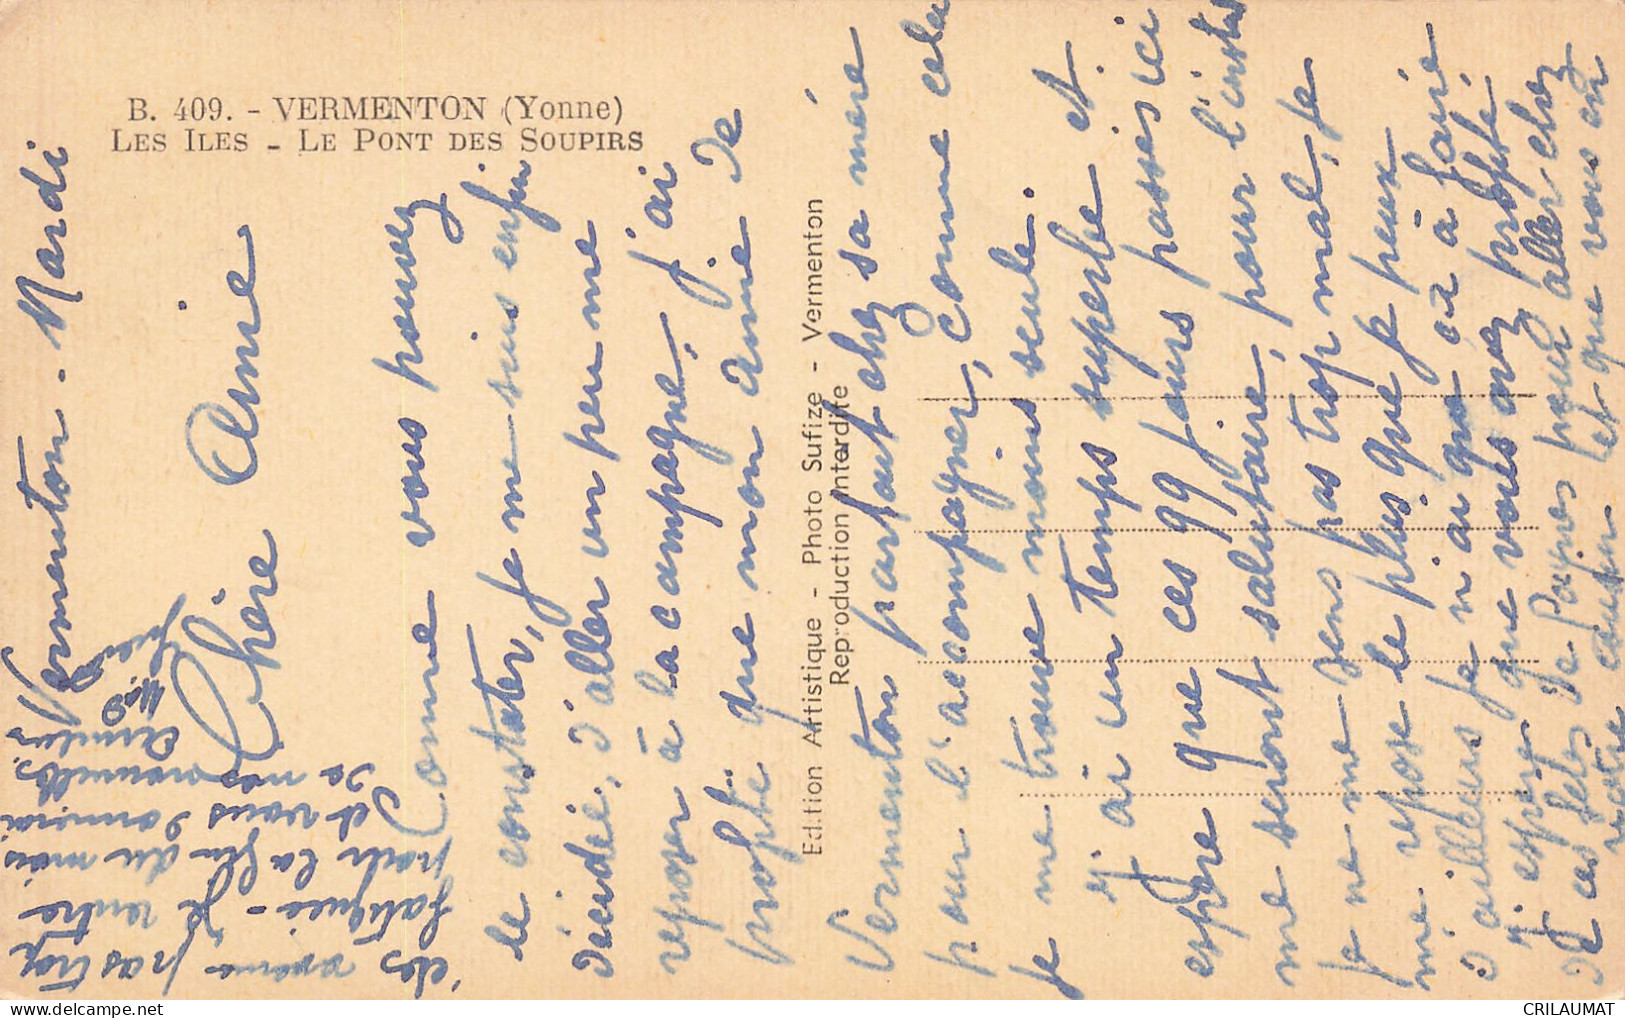 B. 409. - VERMENTON (Yonne)
LES ILES - LE PONT DES SOUPIRS
Edition Artistique - Photo Sufize - Vermenton
Reproduction Interdite
Vermenton - Mardi
Chère Amie
Comme vous pouvez
le constater, je me suis enfin
décidée, d'aller un peu me
reposer à la campagne, j'ai
profité que mon amie de
Vermenton partait chez sa mère
pour l'accompagner, comme cela
je me trouve moins seule.
J'ai un temps superbe et
espère que ces qq jours passés ici
me seront salutaire, pour l'instant
je ne me sens pas trop mal, je
me repose le plus que je peux
d'ailleurs je n'ai que ça à faire
J'espère que vous avez profité
de ces fêtes de Pâques pour aller chez
votre cousin et que vous en
avez pas trop
fatiguée - Je rentre
pour la fin du mois
et vous donnerai
de mes nouvelles.
Amitiés
CRILAUMAT